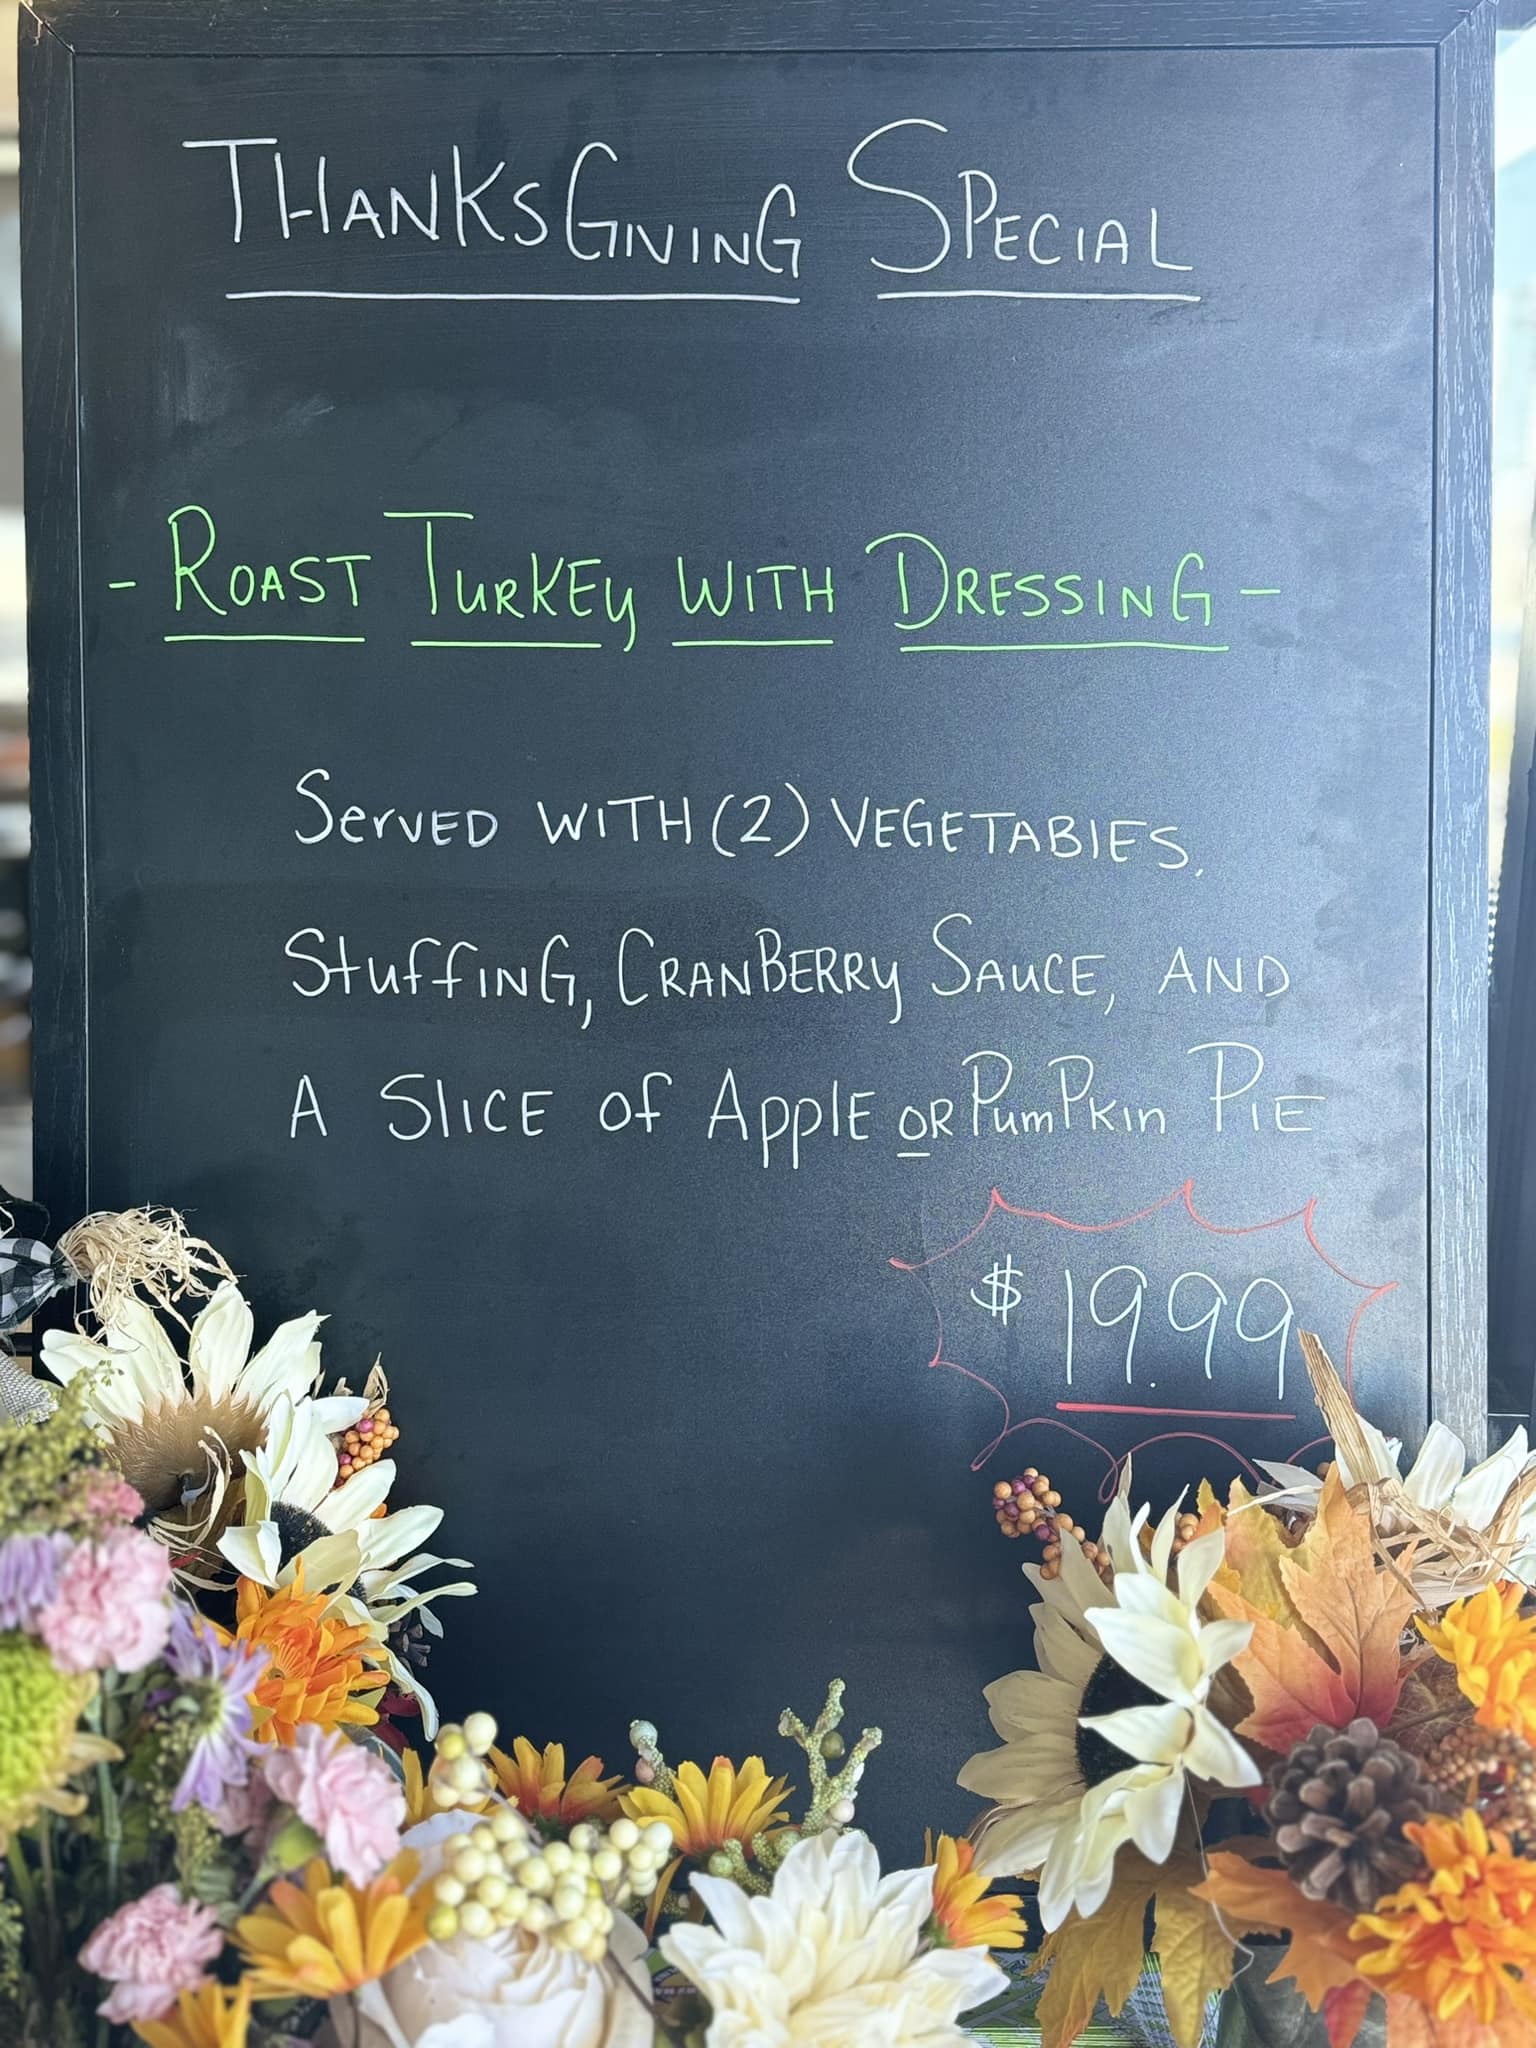 THANKSGIVING SPECIAL
- ROAST TURKEY WITH DRESSING -
SERVED WITH (2) VEGETABLES,
STUFFING, CRANBERRY SAUCE, AND
A SLICE OF APPLE OR PUMPKIN PIE
$19.99